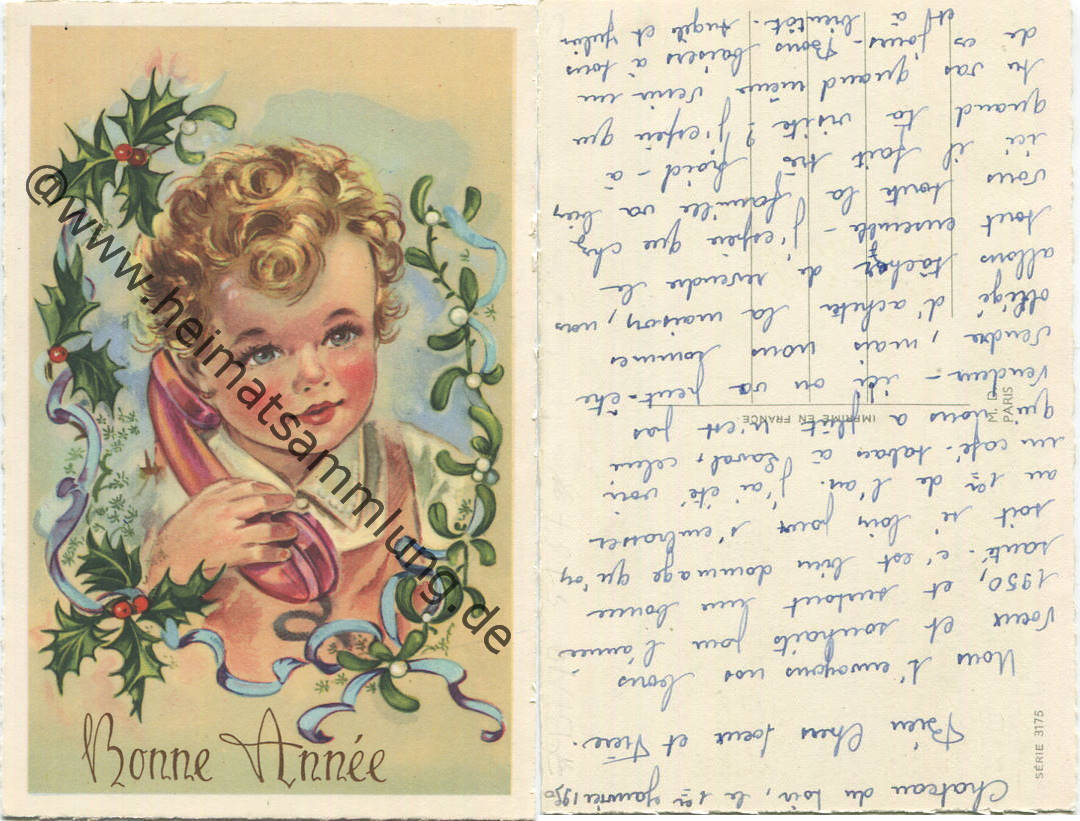 Bonne Année
@www.heimatsammlung.de
Chateau du Loir, le 1er Janvier 1950
Bien Chers soeur et Frère.
Nous t'envoyons nos bons
voeux et souhaits pour l'année
1950, et surtout une bonne
santé. c'est bien dommage qu'on
soit si loin pour s'embrasser
au 1er de l'an. J'ai été voir
un café-tabac à Laval, celui
qui nous a plût n'est pas
vendeur - ici on va peut-être
vendre, mais nous sommes
obligé d'acheter la maison, nous
allons tâcher de revendre le
tout ensemble - J'espère que chez
vous toute la famille va bien
ici il fait très froid - à
quand ta visite? J'espère que
tu vas quand même venir un
de ces jours - Bons baisers à tous
et à bientôt. Angèle et Julien
IMPRIMÉ EN FRANCE
M. D.
PARIS
SÉRIE 3175